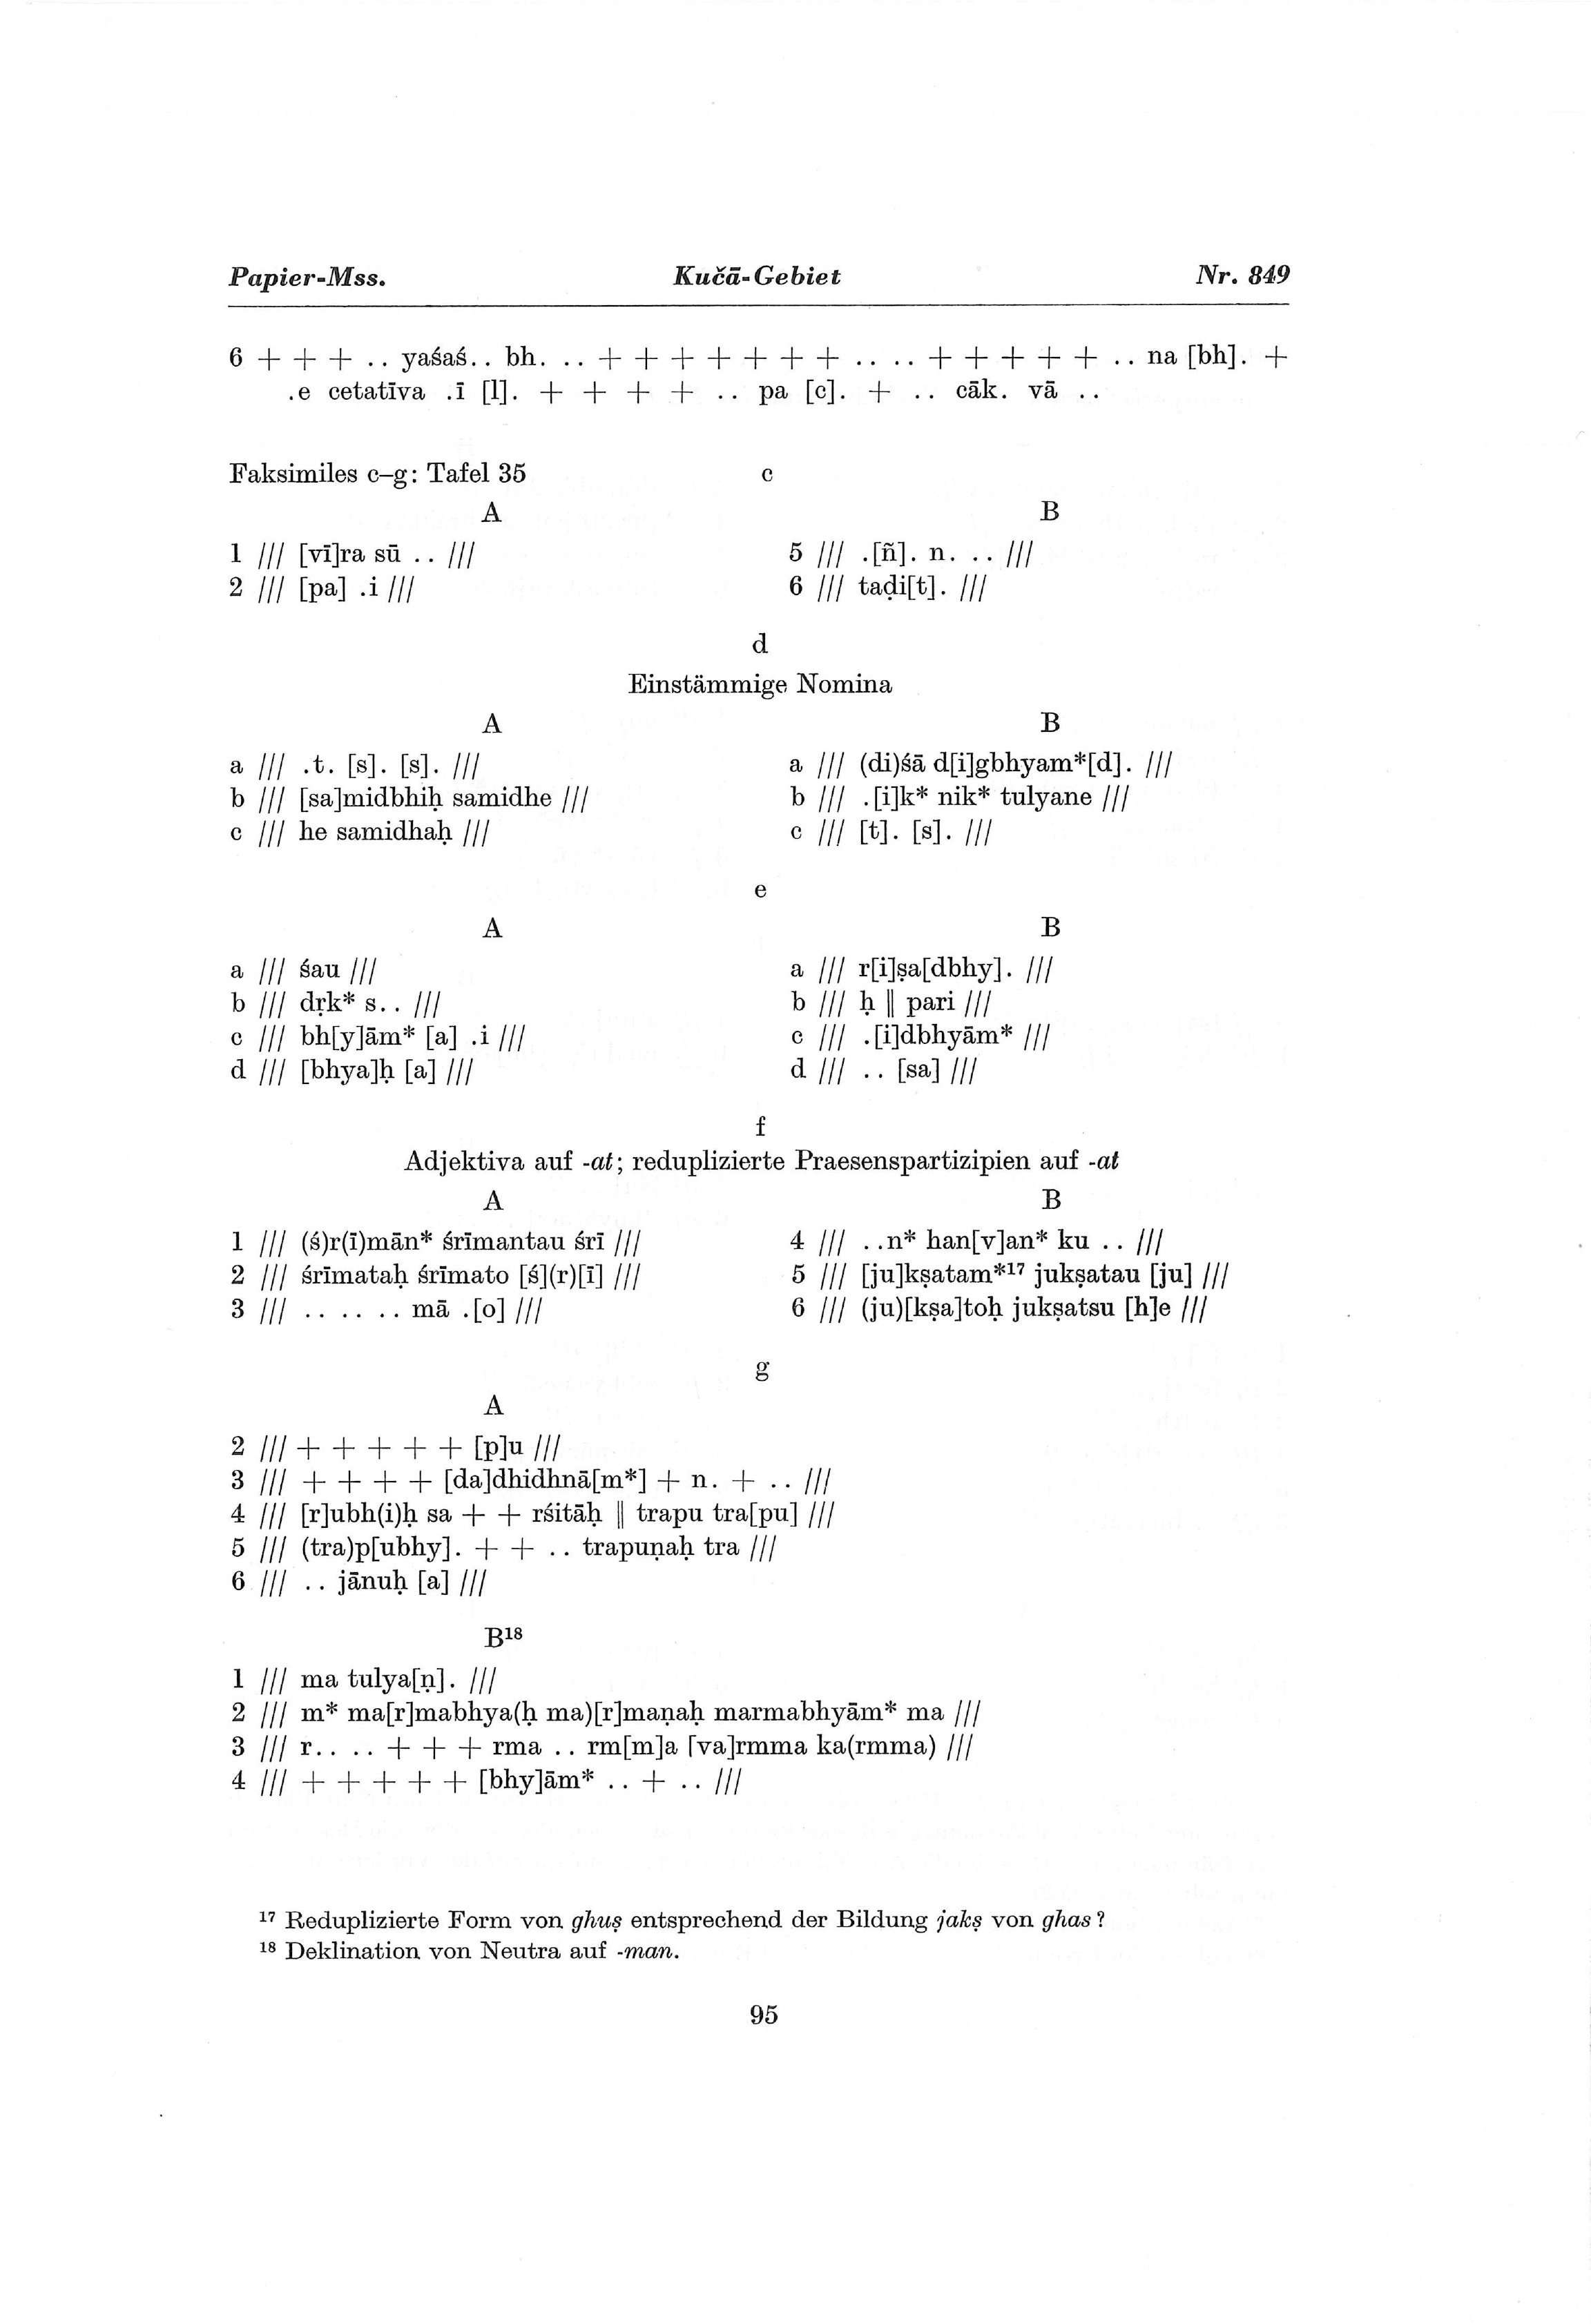 Papier-Mss. Kučā-Gebiet Nr. 849
6 + + + .. yaśaś.. bh. .. + + + + + + + .. .. + + + + + .. na [bh]. +
.e cetatīva .ī [l]. + + + + .. pa [c]. + .. cāk. vā ..
Faksimiles c–g: Tafel 35 c
A B
1 /// [vī]ra sū .. /// 5 /// .[ñ]. n. .. ///
2 /// [pa] .i /// 6 /// taḍi[t]. ///
d
Einstämmige Nomina
A B
a /// .t. [s]. [s]. /// a /// (di)śā d[i]gbhyam*[d]. ///
b /// [sa]midbhiḥ samidhe /// b /// .[i]k* nik* tulyane ///
c /// he samidhaḥ /// c /// [t]. [s]. ///
e
A B
a /// śau /// a /// r[i]ṣa[dbhy]. ///
b /// dṛk* s.. /// b /// ḥ || pari ///
c /// bh[y]ām* [a] .i /// c /// .[i]dbhyām* ///
d /// [bhya]ḥ [a] /// d /// .. [sa] ///
f
Adjektiva auf -at; reduplizierte Praesenspartizipien auf -at
A B
1 /// (ś)r(ī)mān* śrīmantau śrī /// 4 /// ..n* han[v]an* ku .. ///
2 /// śrīmataḥ śrīmato [ś](r)[ī] /// 5 /// [ju]kṣatam*¹⁷ jukṣatau [ju] ///
3 /// .. .. .. mā .[o] /// 6 /// (ju)[kṣa]toḥ jukṣatsu [h]e ///
g
A
2 /// + + + + + [p]u ///
3 /// + + + + [da]dhidhnā[m*] + n. + .. ///
4 /// [r]ubh(i)ḥ sa + + rśitāḥ || trapu tra[pu] ///
5 /// (tra)p[ubhy]. + + .. trapuṇaḥ tra ///
6 /// .. jānuḥ [a] ///
B¹⁸
1 /// ma tulya[ṇ]. ///
2 /// m* ma[r]mabhya(ḥ ma)[r]maṇaḥ marmabhyām* ma ///
3 /// r.. .. + + + rma .. rm[m]a [va]rmma ka(rmma) ///
4 /// + + + + + [bhy]ām* .. + .. ///
¹⁷ Reduplizierte Form von ghuṣ entsprechend der Bildung jakṣ von ghas?
¹⁸ Deklination von Neutra auf -man.
95